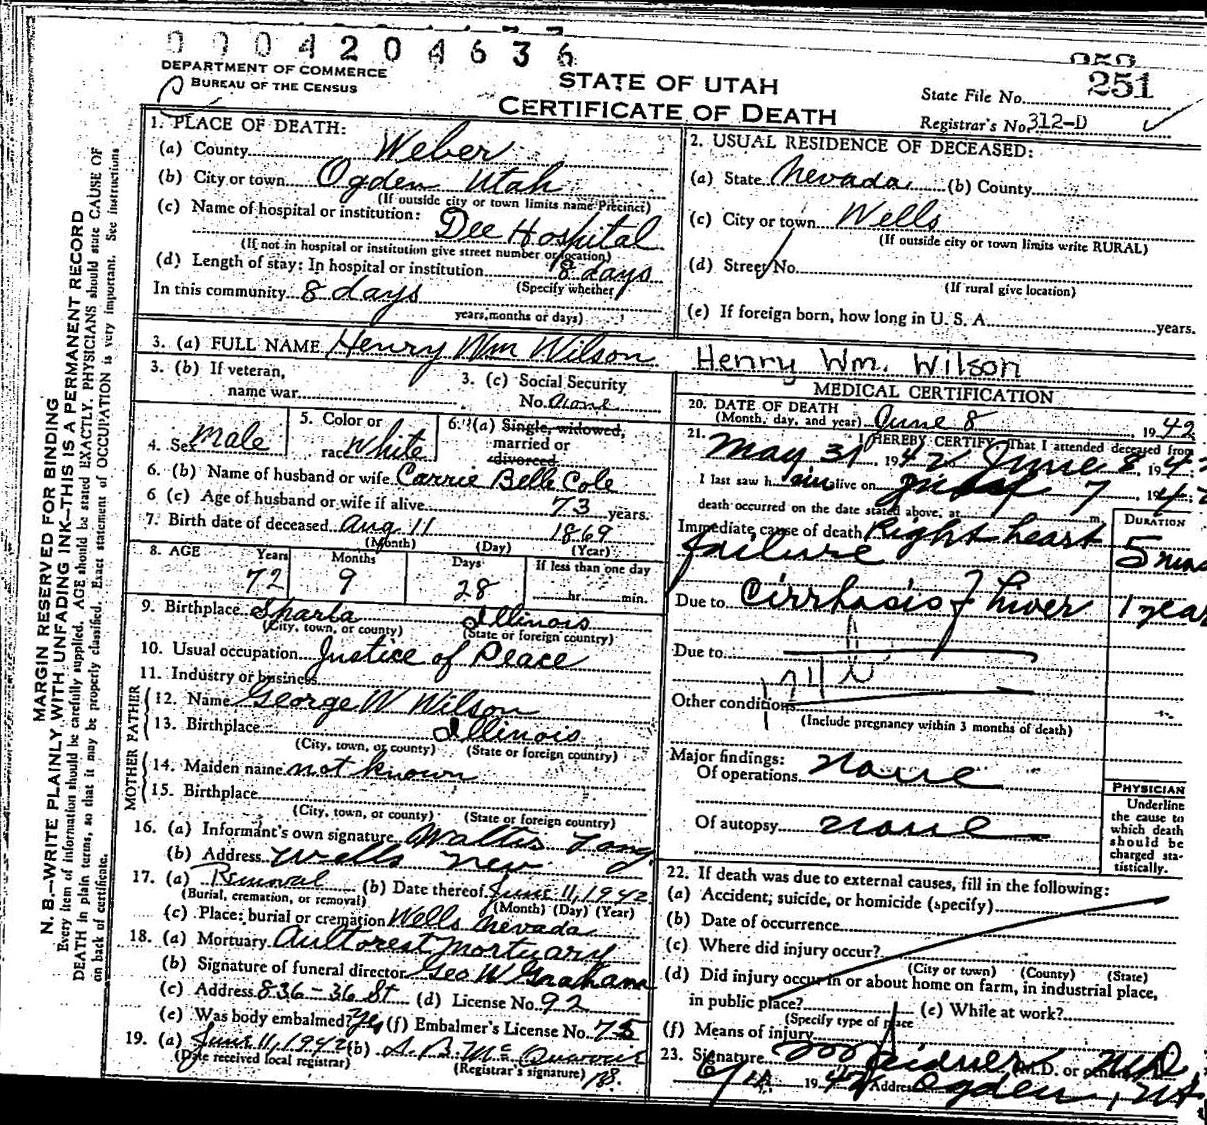 0004204636
DEPARTMENT OF COMMERCE
BUREAU OF THE CENSUS
STATE OF UTAH
CERTIFICATE OF DEATH
State File No. 251
Registrar's No. 312-D
MARGIN RESERVED FOR BINDING
N. B.—WRITE PLAINLY, WITH UNFADING INK—THIS IS A PERMANENT RECORD
Every item of information should be carefully supplied. AGE should be stated EXACTLY. PHYSICIANS should state CAUSE OF
DEATH in plain terms, so that it may be properly classified. Exact statement of OCCUPATION is very important. See instructions
on back of certificate.
1. PLACE OF DEATH:
(a) County Weber
(b) City or town Ogden Utah
(If outside city or town limits name Precinct)
(c) Name of hospital or institution:
Dee Hospital
(If not in hospital or institution give street number or location)
(d) Length of stay: In hospital or institution 8 days
(Specify whether
In this community 8 days
years, months or days)
2. USUAL RESIDENCE OF DECEASED:
(a) State Nevada (b) County
(c) City or town Wells
(If outside city or town limits write RURAL)
(d) Street No.
(If rural give location)
(e) If foreign born, how long in U. S. A. years.
3. (a) FULL NAME Henry Wm Wilson Henry Wm. Wilson
3. (b) If veteran,
name war
3. (c) Social Security
No. none
4. Sex male
5. Color or
race White
6. (a) Single, widowed,
married or
divorced
6. (b) Name of husband or wife Carrie Belle Cole
6. (c) Age of husband or wife if alive 73 years.
7. Birth date of deceased Aug 11 1869
(Month) (Day) (Year)
8. AGE Years Months Days If less than one day
72 9 28 hr. min.
9. Birthplace Sparta Illinois
(City, town, or county) (State or foreign country)
10. Usual occupation Justice of Peace
11. Industry or business
FATHER
12. Name George W Wilson
13. Birthplace Illinois
(City, town, or county) (State or foreign country)
MOTHER
14. Maiden name not known
15. Birthplace
(City, town, or county) (State or foreign country)
16. (a) Informant's own signature Walter Tang
(b) Address Wells Nev
17. (a) Removal (b) Date thereof June 11, 1942
(Burial, cremation, or removal) (Month) (Day) (Year)
(c) Place; burial or cremation Wells Nevada
18. (a) Mortuary Aultorest Mortuary
(b) Signature of funeral director Geo W Graham
(c) Address 836-36 St (d) License No. 92
(e) Was body embalmed? Yes (f) Embalmer's License No. 75
19. (a) June 11, 1942 (b)
(Date received local registrar) (Registrar's signature)
MEDICAL CERTIFICATION
20. DATE OF DEATH
(Month, day, and year) June 8, 1942
21. I HEREBY CERTIFY, That I attended deceased from
May 31 1942 June 8 194
I last saw him alive on June 7, 194
death occurred on the date stated above, at m.
DURATION
Immediate cause of death Right heart
failure 5 mos
Due to Cirrhosis of Liver 1 year
Due to
Other conditions
(Include pregnancy within 3 months of death)
Major findings:
Of operations none
Of autopsy none
PHYSICIAN
Underline
the cause to
which death
should be
charged sta-
tistically.
22. If death was due to external causes, fill in the following:
(a) Accident, suicide, or homicide (specify)
(b) Date of occurrence
(c) Where did injury occur?
(City or town) (County) (State)
(d) Did injury occur in or about home on farm, in industrial place,
in public place? (e) While at work?
(Specify type of place
(f) Means of injury
23. Signature M.D. or other MD
1942 Address Ogden, Ut